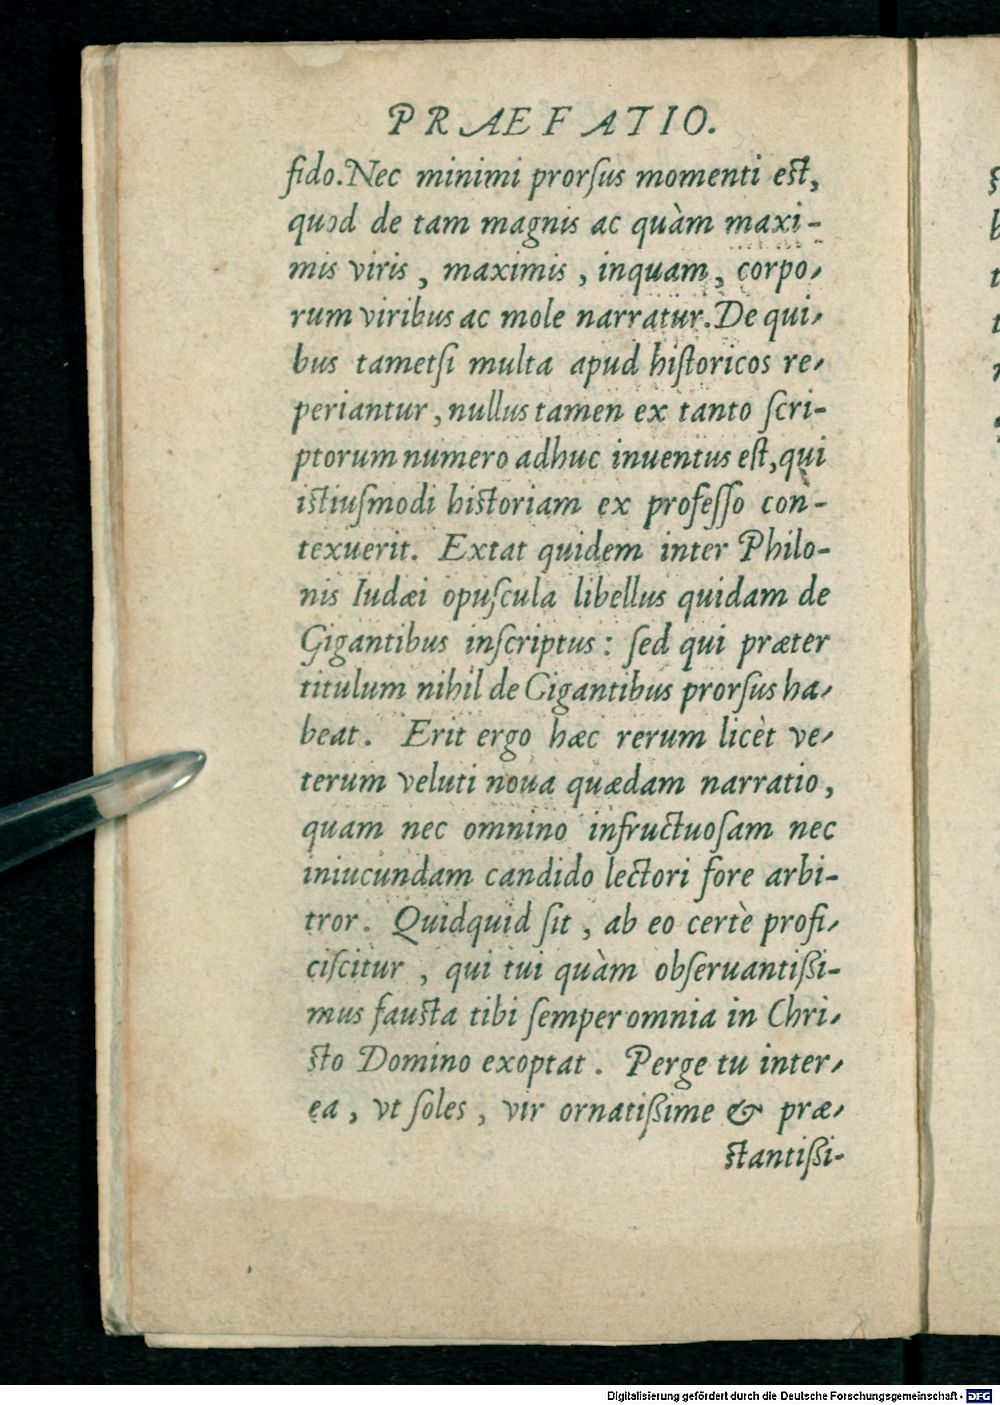 PRAEFATIO.
fido. Nec minimi prorſus momenti eſt,
quod de tam magnis ac quàm maxi-
mis viris, maximis, inquam, corpo-
rum viribus ac mole narratur. De qui-
bus tametſi multa apud hiſtoricos re-
periantur, nullus tamen ex tanto ſcri-
ptorum numero adhuc inuentus eſt, qui
iſtiuſmodi hiſtoriam ex profeſſo con-
texuerit. Extat quidem inter Philo-
nis Iudæi opuſcula libellus quidam de
Gigantibus inſcriptus: ſed qui præter
titulum nihil de Gigantibus prorſus ha-
beat. Erit ergo hæc rerum licèt ve-
terum veluti noua quædam narratio,
quam nec omnino infructuoſam nec
iniucundam candido lectori fore arbi-
tror. Quidquid ſit, ab eo certè profi-
ciſcitur, qui tui quàm obſeruantiſſi-
mus fauſta tibi ſemper omnia in Chri-
ſto Domino exoptat. Perge tu inter-
ea, vt ſoles, vir ornatiſſime & præ-
ſtantiſſi-
Digitalisierung gefördert durch die Deutsche Forschungsgemeinschaft - DFG